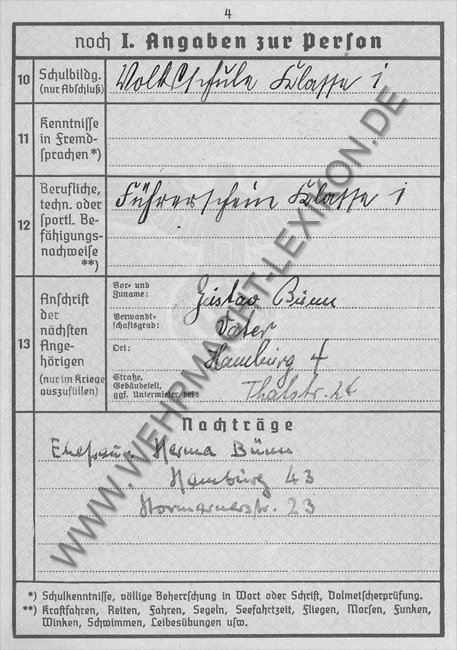 4
noch I. Angaben zur Person
10 Schulbildg. (nur Abschluß) Volksschule Klasse 1
11 Kenntnisse in Fremd-
sprachen*)
12 Berufliche, techn. oder sportl. Be-
fähigungs-
nachweise **)
Führerschein Klasse 1
13 Anschrift der nächsten Ange-
hörigen (nur im Kriege auszufüllen)
Vor- und Zuname: Gustav Bünn
Verwandt-
schaftsgrad: Vater
Ort: Hamburg 4
Straße, Gebäudeteil, ggf. Untermieter bei: Thalstr. 26
Nachträge
Ehefrau: Herma Bünn
Hamburg 43
23
*) Schulkenntnisse, völlige Beherrschung in Wort oder Schrift, Dolmetscherprüfung.
**) Kraftfahren, Reiten, Fahren, Segeln, Seefahrtzeit, Fliegen, Morsen, Funken,
Winken, Schwimmen, Leibesübungen usw.
WWW.WEHRMACHT-LEXIKON.DE